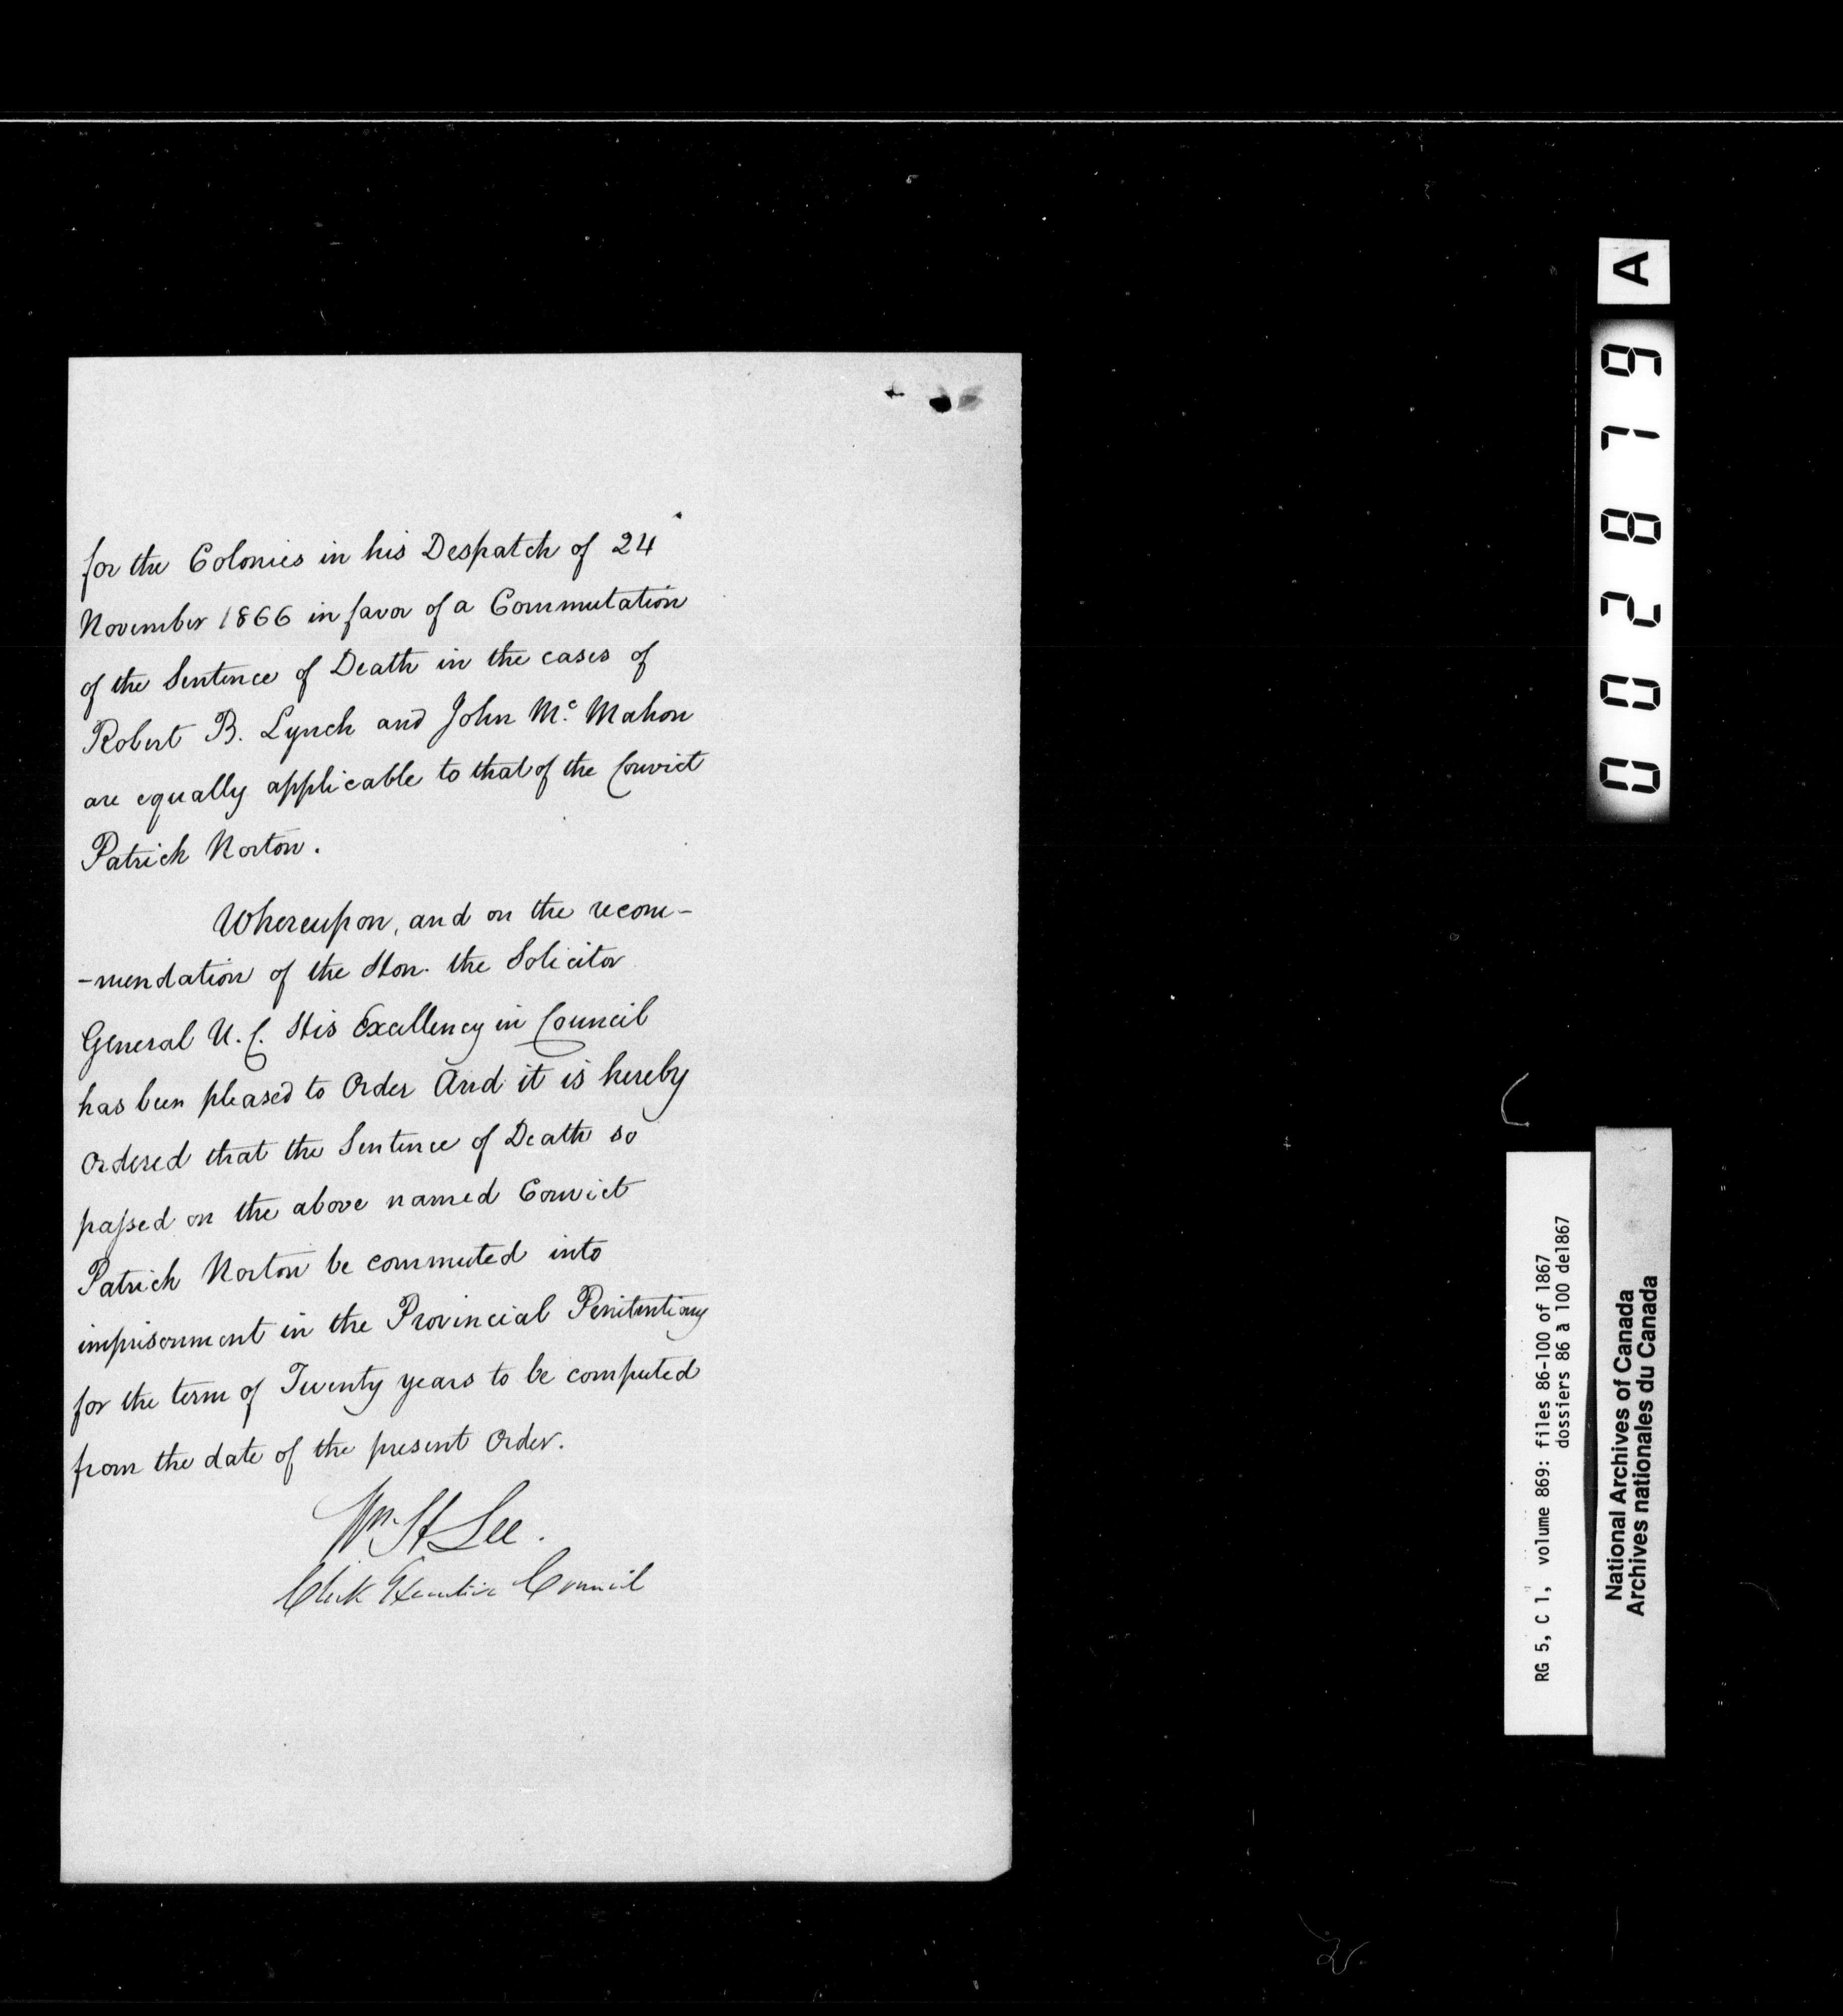 for the Colonies in his Despatch of 24
November 1866 in favor of a Commutation
of the Sentence of Death in the cases of
Robert B. Lynch and John Mc. Mahon
are equally applicable to that of the Convict
Patrick Norton.
Whereupon, and on the recom-
-mendation of the Hon. the Solicitor
General U. C. His Excellency in Council
has been pleased to Order And it is hereby
Ordered that the Sentence of Death so
passed on the above named Convict
Patrick Norton be commuted into
imprisonment in the Provincial Penitentiary
for the term of Twenty years to be computed
from the date of the present Order.
Wm H Lee.
Clerk Executive Council
002879 A
RG 5, C 1, volume 869: files 86-100 of 1867
dossiers 86 à 100 de1867
National Archives of Canada
Archives nationales du Canada